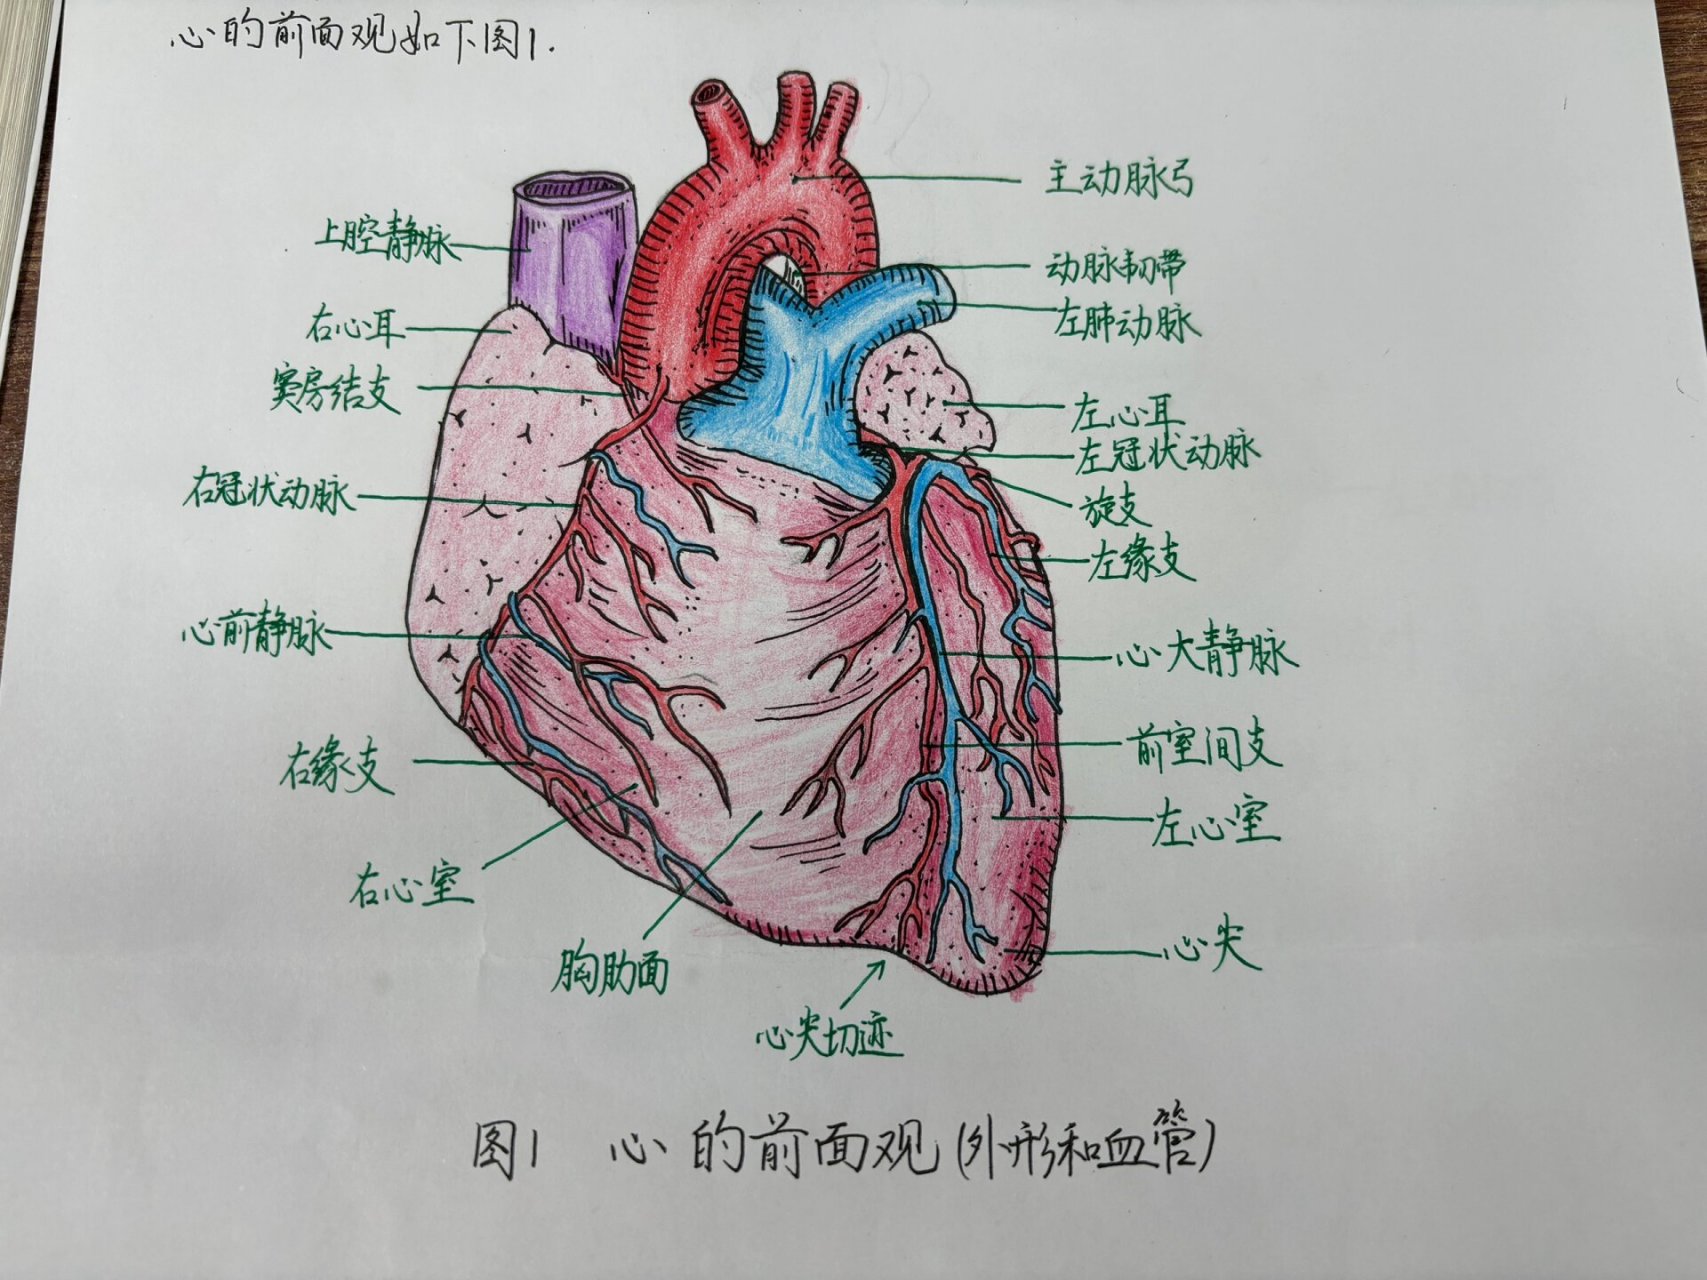 心的前面观如下图1.
主动脉弓
上腔静脉
动脉韧带
右心耳
左肺动脉
窦房结支
左心耳
左冠状动脉
右冠状动脉
旋支
左缘支
心前静脉
心大静脉
右缘支
前室间支
左心室
右心室
胸肋面
心尖
心尖切迹
图1 心的前面观(外形和血管)